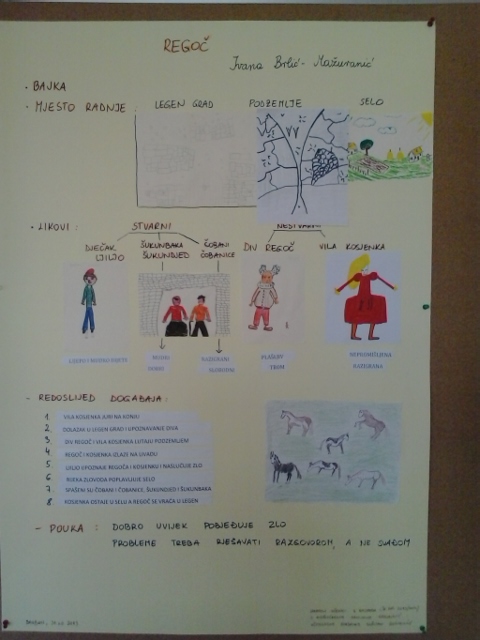 REGOČ
Ivana Brlić-Mažuranić
· BAJKA
· MJESTO RADNJE: LEGEN GRAD PODZEMLJE SELO
· LIKOVI: STVARNI NESTVARNI
DJEČAK LJILJO ŠUKUNBAKA ŠUKUNDJED ČOBANI ČOBANICE DIV REGOČ VILA KOSJENKA
LIJEPO I MUDRO DIJETE
MUDRI
DOBRI
NAIVNI
PLAŠLJIV
TROM
NEPROMIŠLJENA
RAZIGRANA
- REDOSLIJED DOGAĐAJA:
1. VILA KOSJENKA JURI NA KONJU
2. DOLAZAK U LEGEN GRAD I UPOZNAVANJE DIVA
3. DIV REGOČ I VILA KOSJENKA LUTAJU PODZEMLJEM
4. REGOČ I KOSJENKA IZLAZE NA LIVADU
5. LILJO UPOZNAJE REGOČA I KOSJENKU I NASLUĆUJE ZLO
6. RIJEKA ZLOVODA POPLAVLJUJE SELO
7. SPAŠENI SU ČOBANI I ČOBANICE, ŠUKUNDJED I ŠUKUNBAKA
8. KOSJENKA OSTAJE U SELU A REGOČ SE VRAĆA U LEGEN
- POUKA: DOBRO UVIJEK POBJEĐUJE ZLO
PROBLEME TREBA RJEŠAVATI RAZGOVOROM, A NE SVAĐOM